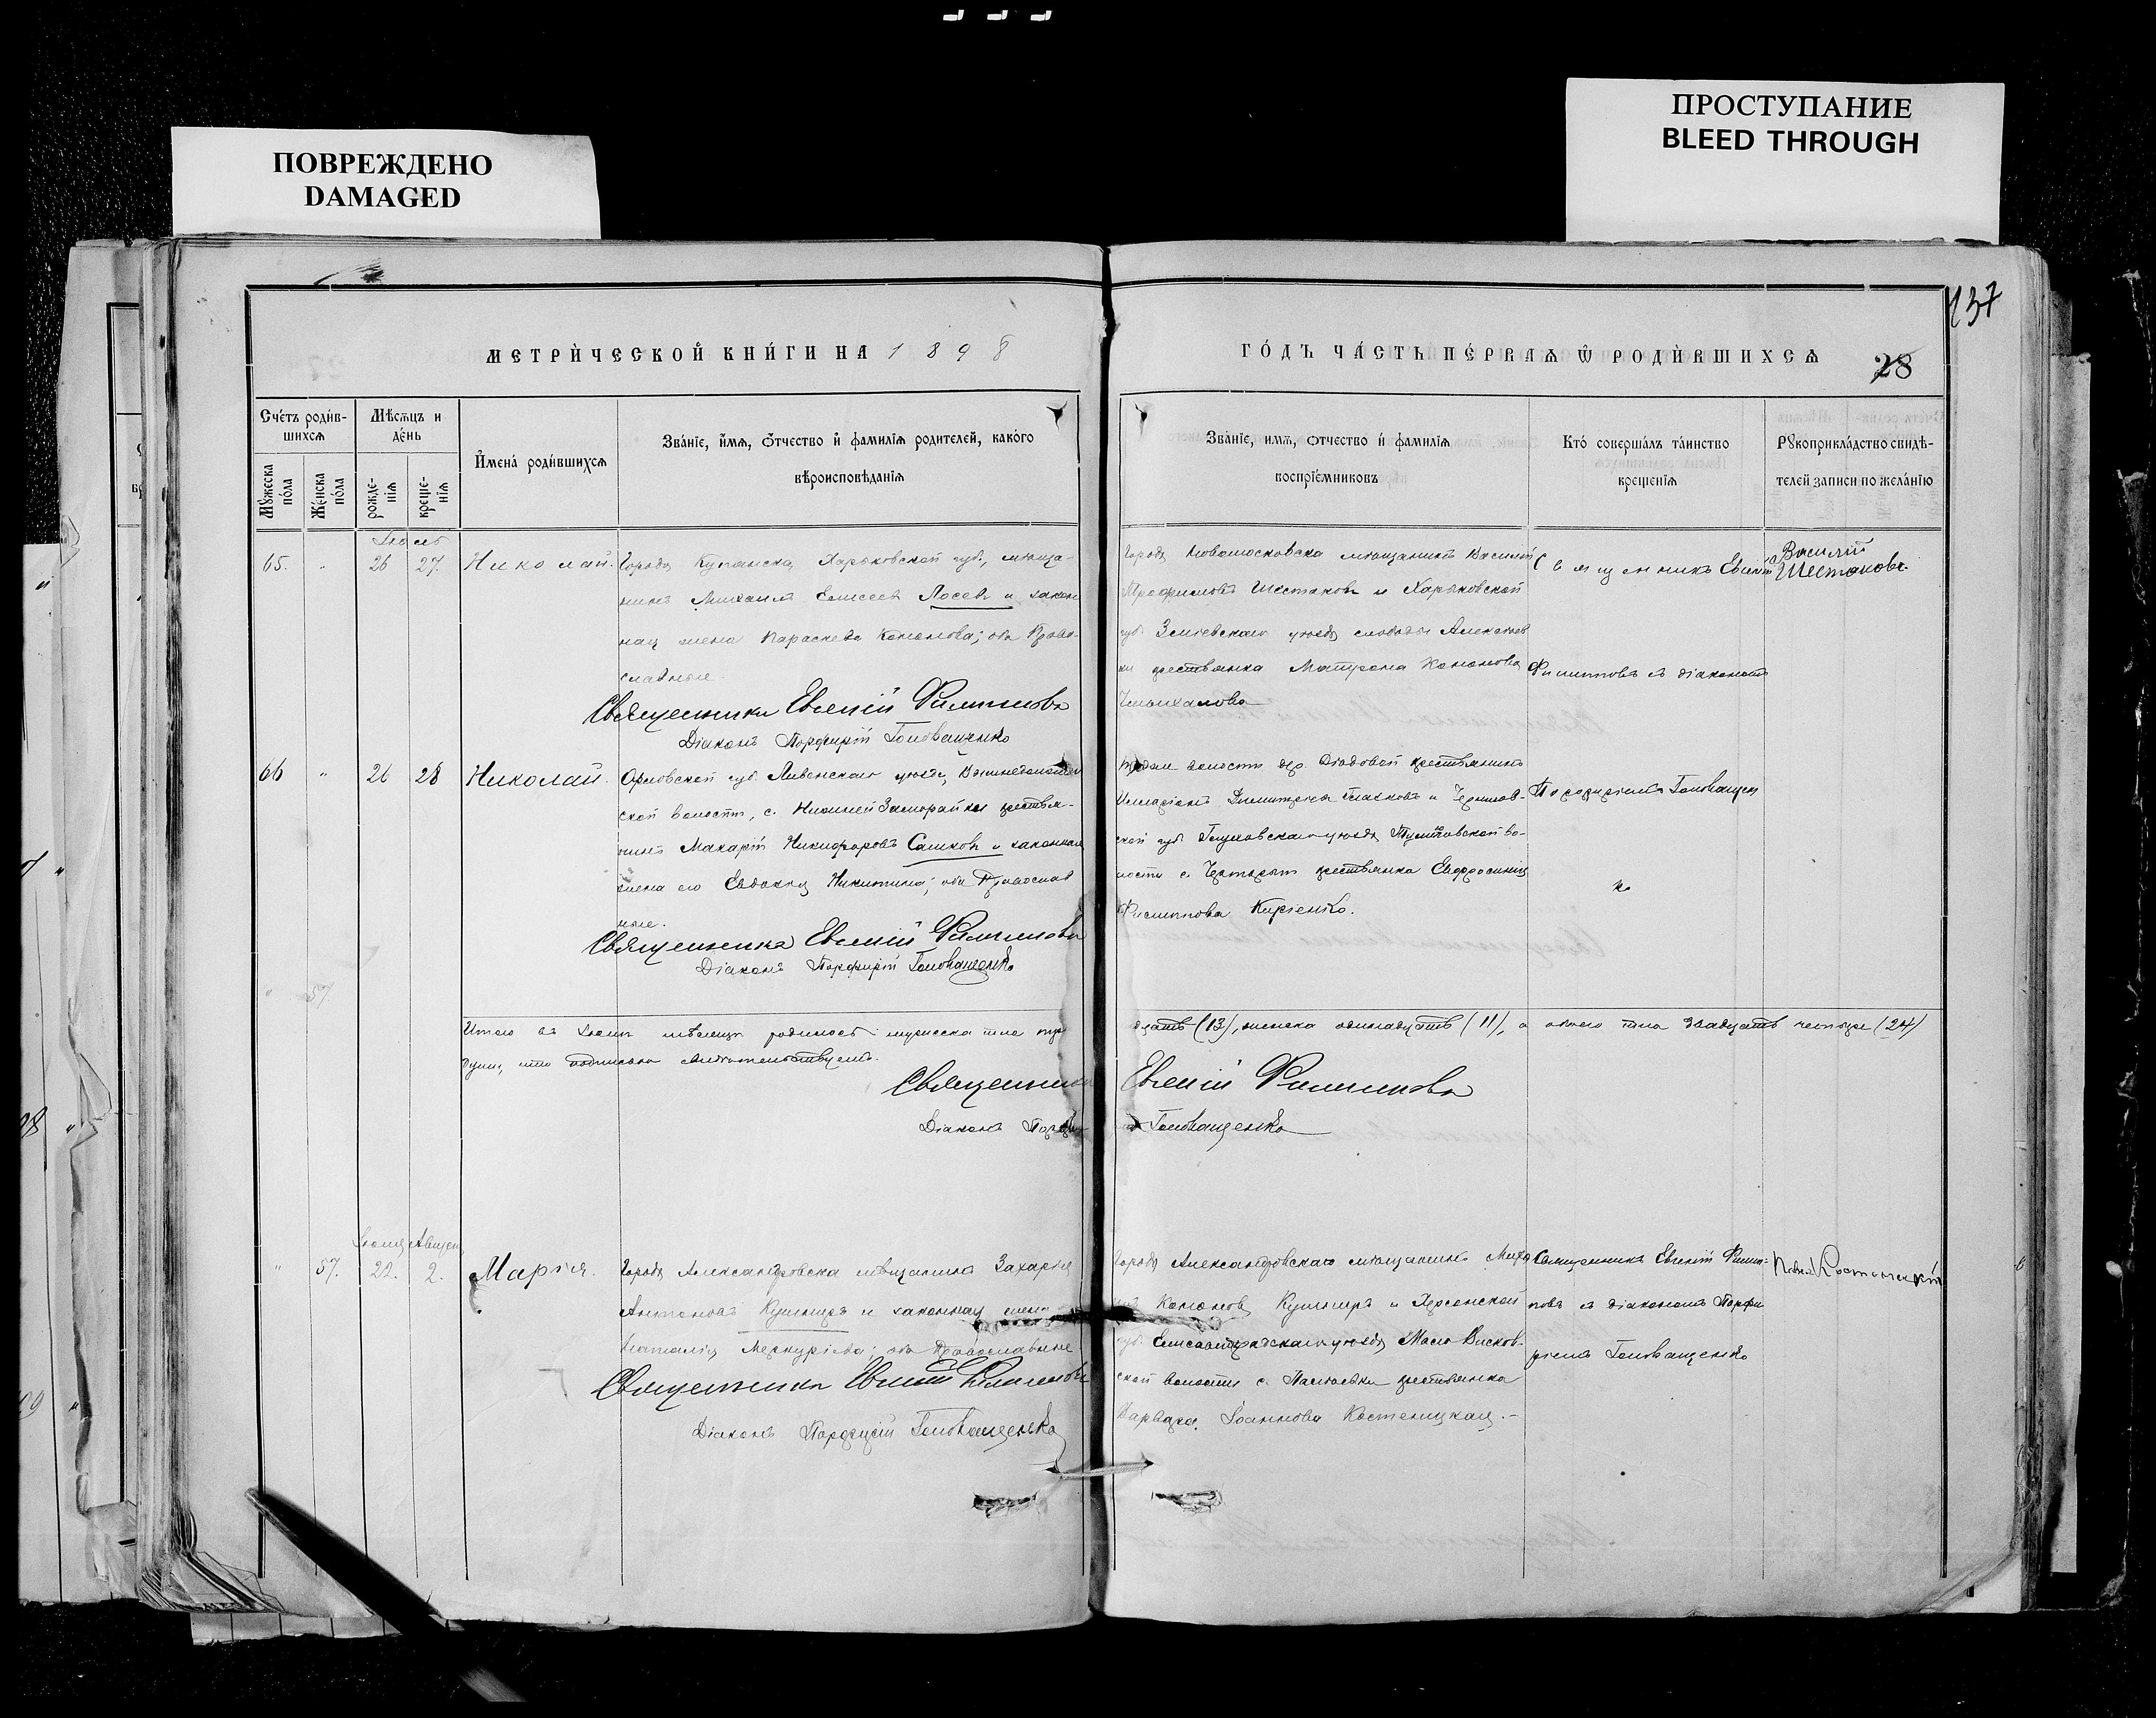 ПОВРЕЖДЕНО
DAMAGED
ПРОСТУПАНИЕ
BLEED THROUGH
137
МЕТРИ́ЧЕСКОЙ КНИ́ГИ НА 1898
ГО́ДЪ ЧА́СТЬ ПЕ́РВАѦ Ѡ҆ РОДИ́ВШИХСѦ
28
Сче́тъ роди́в-
шихсѧ
Мѣ́сѧцъ и
де́нь
И҆мена́ роди́вшихсѧ
Зва́нїе, и҆́мѧ, ѻ҆́тчество и҆ фамилїѧ родителей, како́гѡ
вѣроисповѣ́данїѧ
Мꙋжеска
по́ла
Же́нска
по́ла
рожде-
нїѧ
креще-
нїѧ
Зва́нїе, имѧ, ѻтчество и́ фамилїѧ
воспрїе́мниковъ
Кто́ соверша́лъ та́инство
креще́нїѧ
Рꙋкоприкла́дство свидѣ-
телей записи по жела́нїю
Іюль
65. " 26 27. Николай.
Города Купянска, Харьковской губ., мѣща-
нинъ Михаилъ Елисеевъ Лосевъ и закон
ная жена Параскева Кононова; оба Право-
славные.
Священникъ Евгеній Филипповъ
Діаконъ Порфирій Голованенко
Города Новомосковска мѣщанинъ Василій
Трофимовъ Шестаковъ и Харьковской
губ. Зміевскаго уѣзда слободы Алексѣев
ки крестьянка Матрона Кононова
Священникъ Евгеній
Филипповъ съ діакономъ
Василій
Шестаковъ
66 " 26 28 Николай.
Орловской губ. Ливенскаго уѣзда,
ской волости, с. Нижней крестья-
нинъ Макарій Никифоровъ Сашковъ и законная
жена его Евдокія Никитина; оба Православ
ные.
Священникъ Евгеній Филипповъ
Діаконъ Порфирій Голованенко
волости дер. крестьянинъ
Илларіонъ Димитріевъ и Чернигов-
ской губ. Глуховскаго уѣзда во-
лости с. крестьянка Евфросинія
Филиппова Киріенко.
Порфиріемъ Голованен
ко
Итого въ Іюлѣ мѣсяцѣ родилось: мужеска пола три
надцать (13), женска одинадцать (11), а обоего пола двадцать четыре (24)
души, что подписью свидѣтельствуемъ.
Священникъ Евгеній Филипповъ
Діаконъ Порфирій Голованенко
Іюля Август
" 57. 22. 2. Марія.
Города Александровска мѣщанинъ Захарія
Антоновъ Кушниръ и законная жена
Наталія Меркуріева; оба Православные
Священникъ Евгеній Филипповъ
Діаконъ Порфирій Голованенко
Города Александровскаго мѣщанинъ
Кононовъ Кушниръ и Херсонской
губ. Елисаветградскаго уѣзда Мало Висков-
ской волости с. крестьянка
Варвара Іоаннова Костеницкая.
Священникъ Евгеній Филип-
повъ съ діакономъ Порфи
ріемъ Голованенко